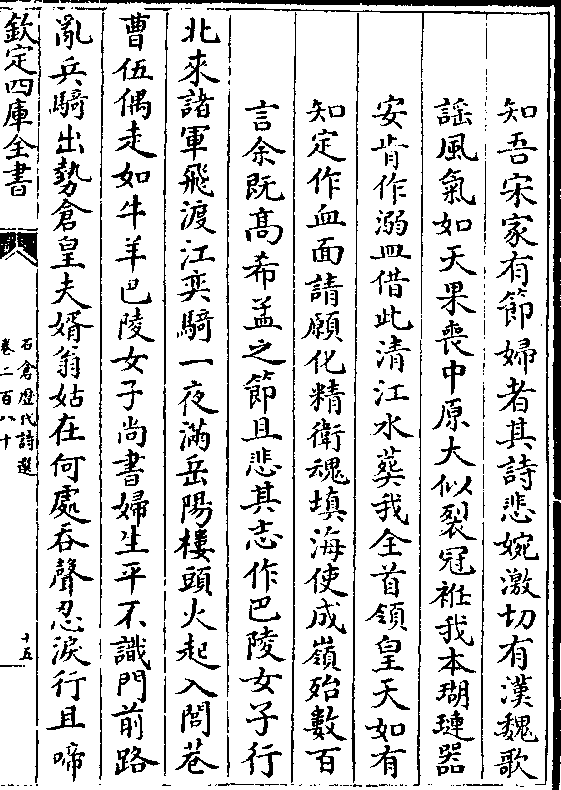 知吾宋家有節婦者其詩悲婉激切有漢魏歌
謡風氣如天果喪中原大似裂冠袵我本瑚璉器
安肯作溺皿借此清江水葬我全首領皇天如有
知定作血面請願化精衛魂填海使成嶺殆數百
言余既髙希孟之節且悲其志作巴陵女子行
北來諸軍飛渡江奕騎一夜滿岳陽樓頭火起入閭巷
曹伍偶走如牛羊巴陵女子尚書婦生平不識門前路
亂兵騎出勢倉皇夫婿翁姑在何處吞聲忍淚行且啼
欽定四庫全書
石倉歴代詩選
卷二百八十
十五